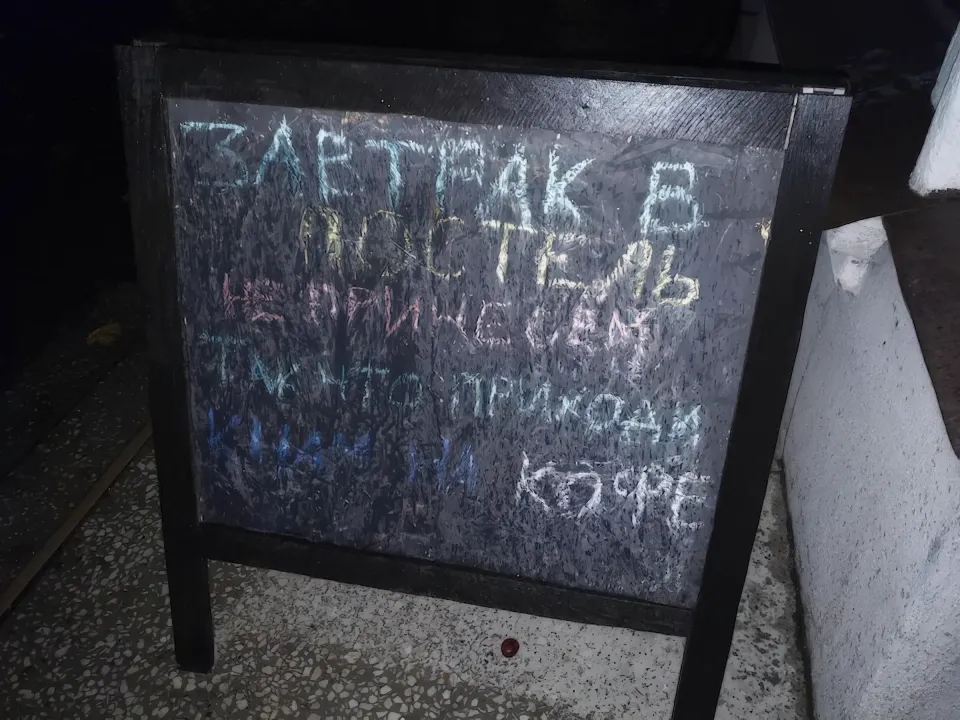 ЗАВТРАК В
ПОСТЕЛЬ
НЕ ПРИНЕСЕМ
ТАК ЧТО ПРИХОДИ
К НАМ НА КОФЕ